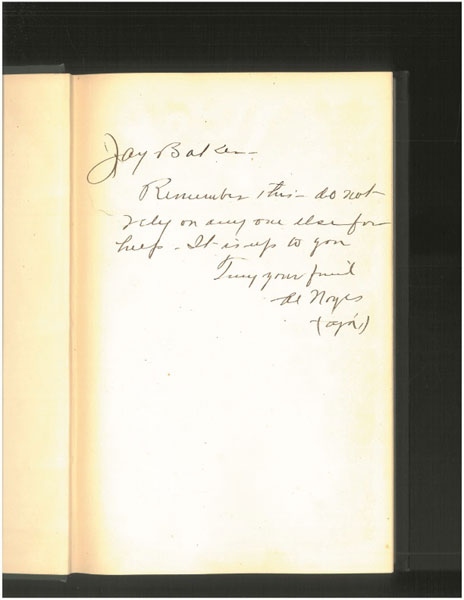 Jay Baker -
Remember this - do not
rely on any one else for
help - It is up to you
Truly your friend
Al Noyes